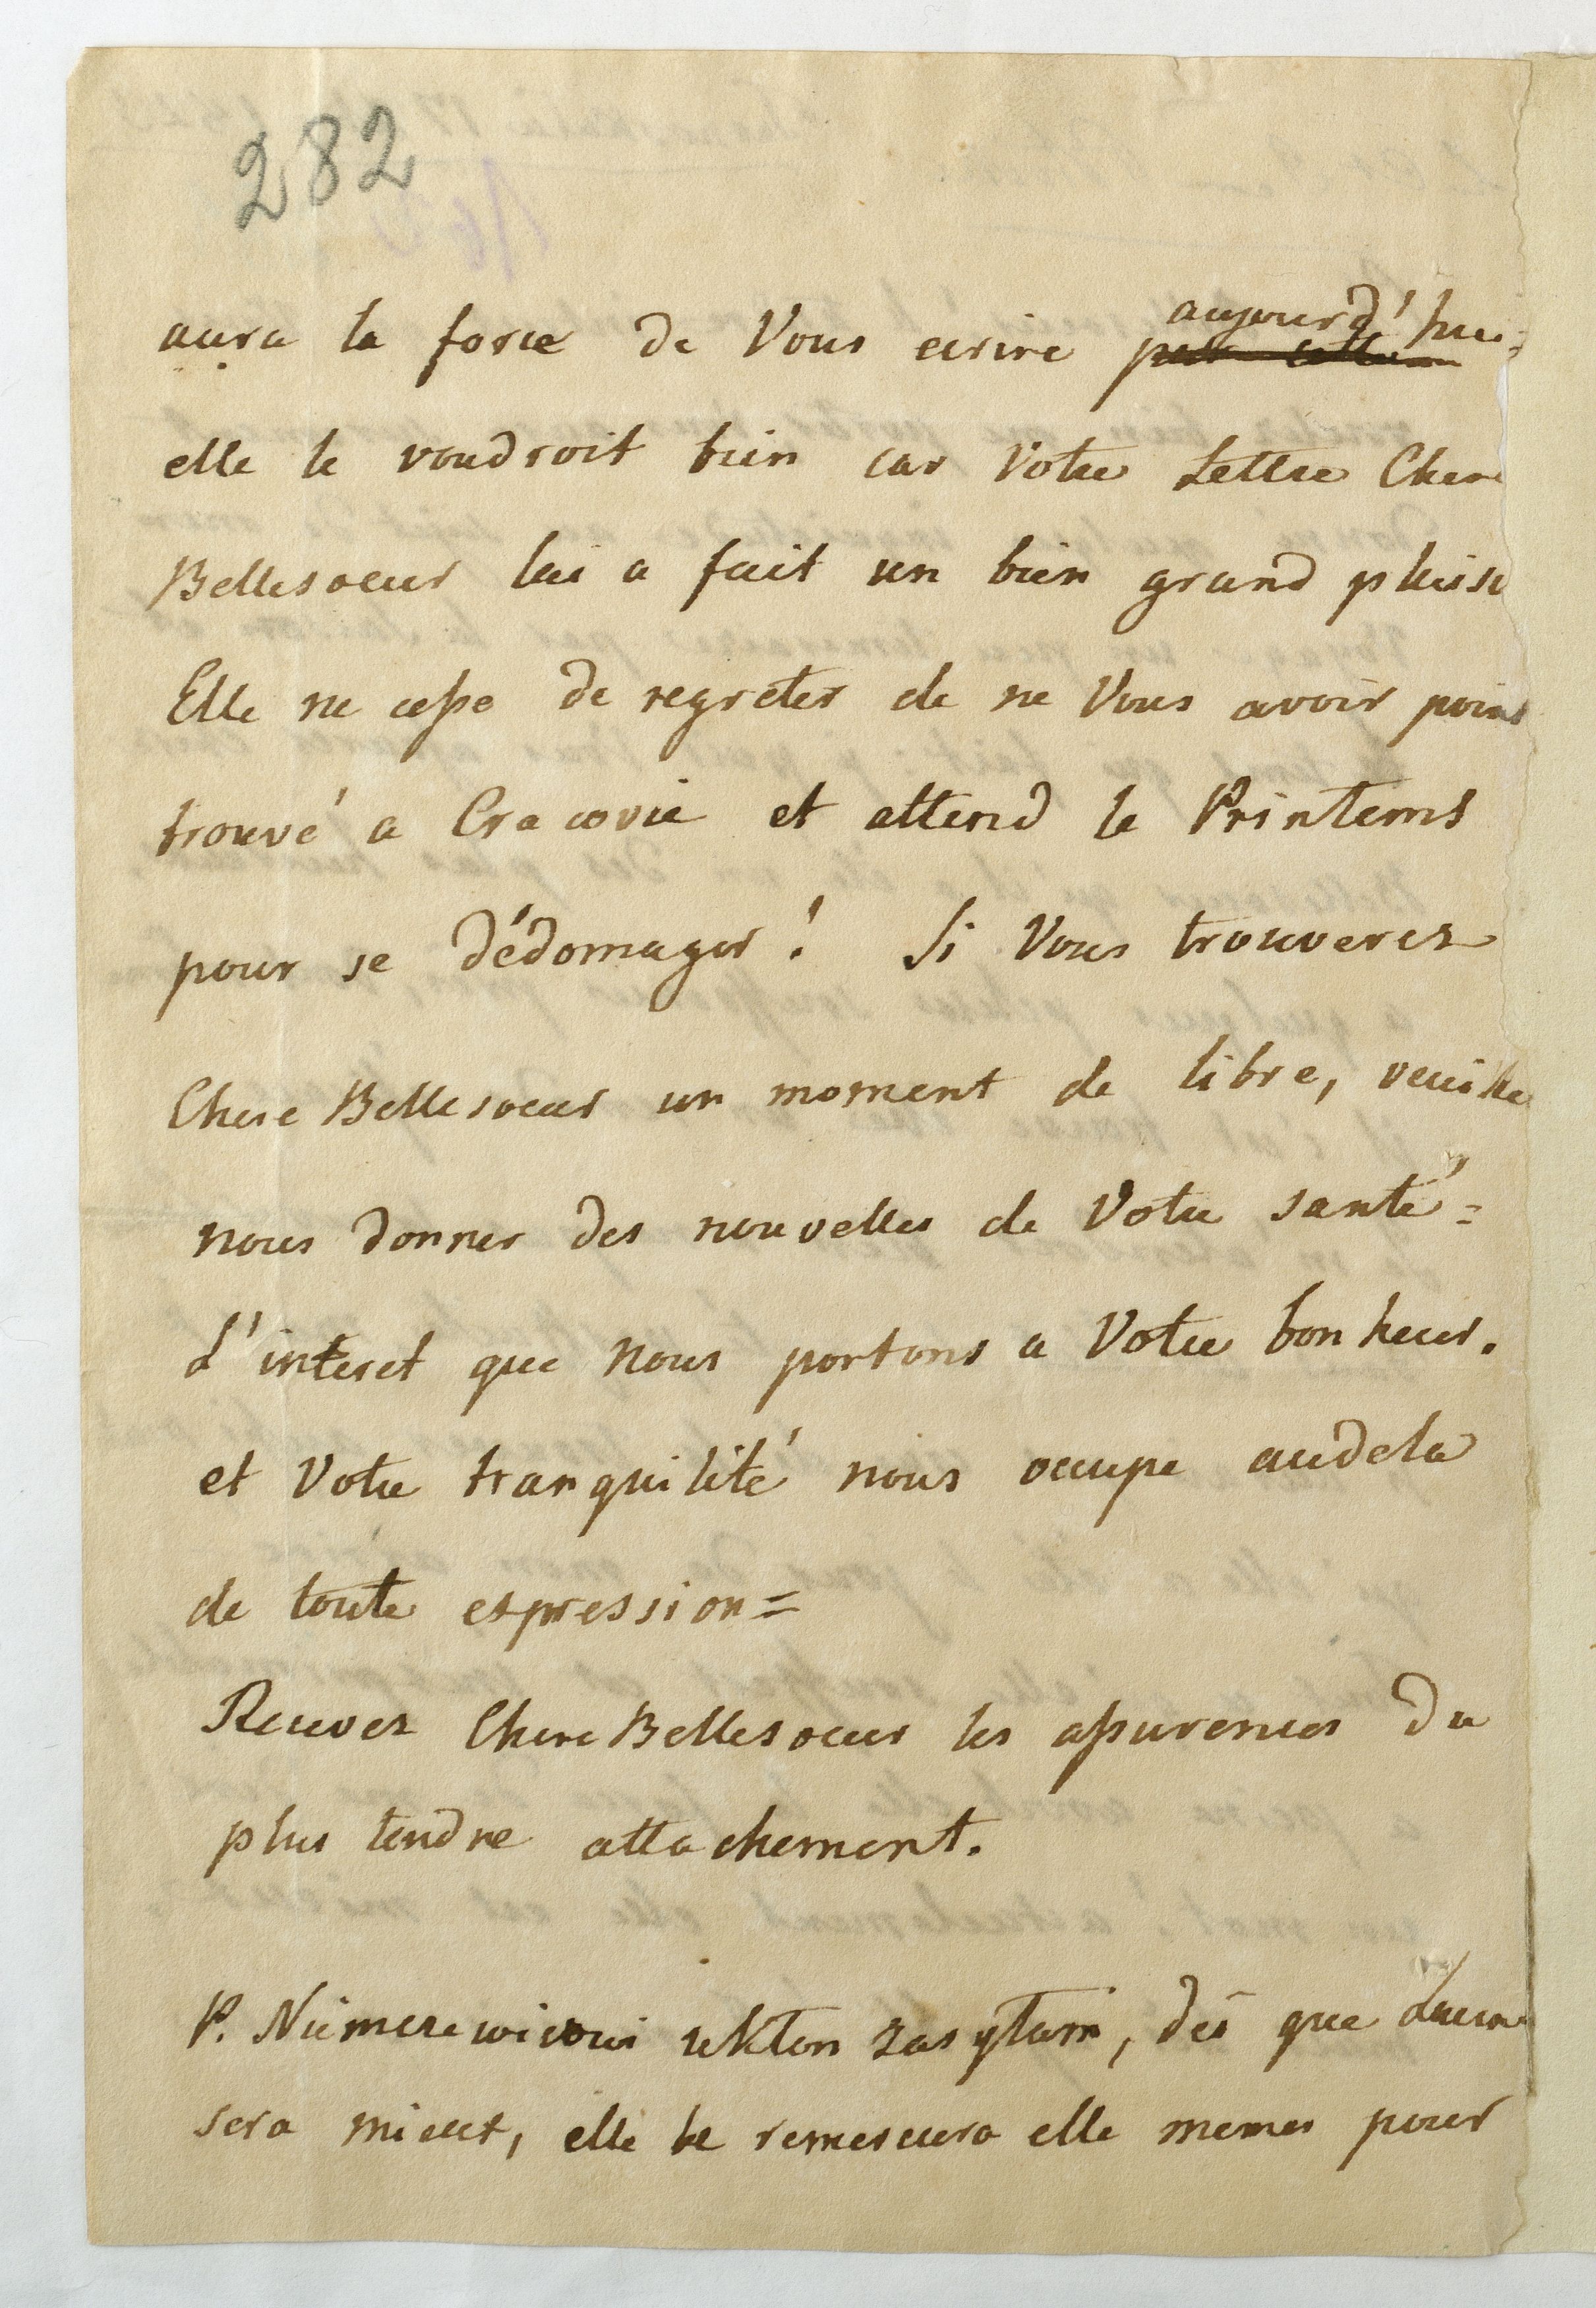 282
aujourd'hui
aura la force de Vous ecrire par cette
elle le voudroit bien car Votre Lettre Chere
Bellesoeur lui a fait un bien grand plaisi
Elle ne cesse de regreter de ne Vous avoir point
trouvé a Cracovie et attend le Printems
pour se dédomager! Si Vous trouverez
Chere Bellesoeur un moment de libre, veuille
nous donner des nouvelles de Votre santé =
L'interet que nous portons a Votre bonheur.
et Votre tranquilité nous occupe audela
de toute expression =
Recevez Chere Bellesoeur les assurences du
plus tendre attachement.
P. Niemcrewiczowi ukłon zasyłam, dés que
sera mieux, elle le remerciera elle memes pour